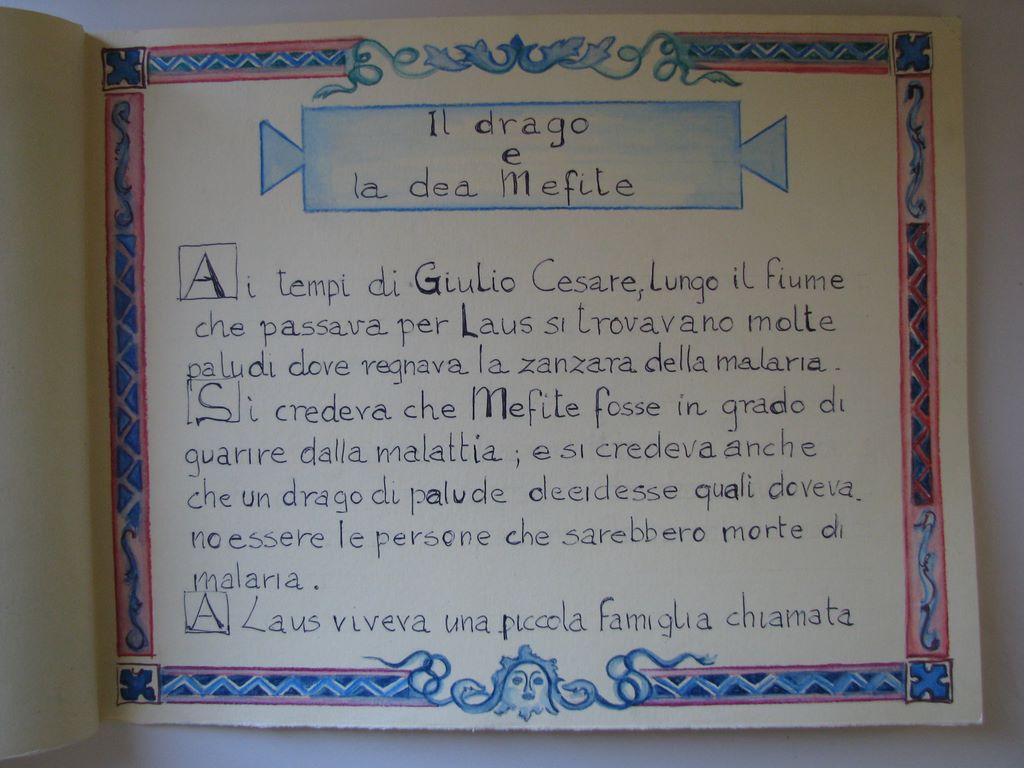 Il drago
e
la dea Mefite
Ai tempi di Giulio Cesare, lungo il fiume
che passava per Laus si trovavano molte
paludi dove regnava la zanzara della malaria.
Si credeva che Mefite fosse in grado di
guarire dalla malattia; e si credeva anche
che un drago di palude decidesse quali doveva.
no essere le persone che sarebbero morte di
malaria.
A Laus viveva una piccola famiglia chiamata